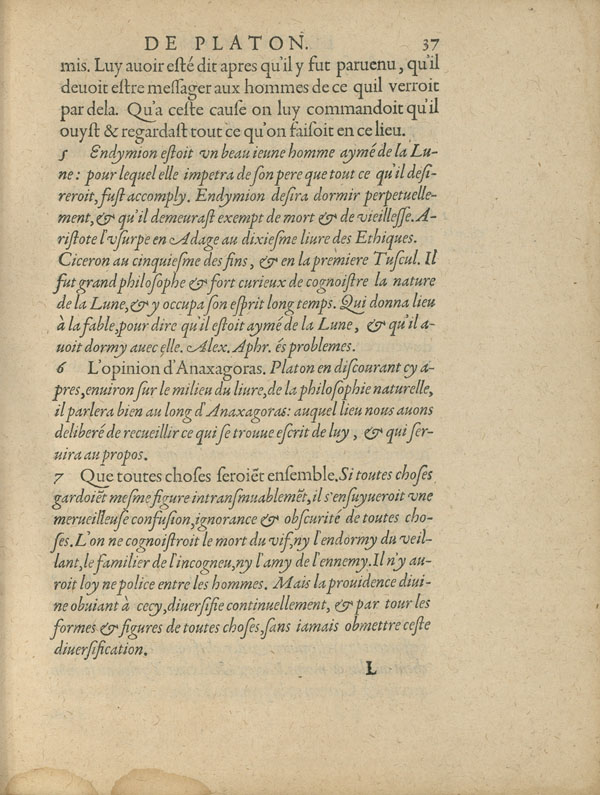 DE PLATON. 37
mis. Luy auoir eſté dit apres qu'il y fut paruenu, qu'il
deuoit eſtre meſſager aux hommes de ce quil verroit
par dela. Qu'a ceſte cauſe on luy commandoit qu'il
ouyſt & regardaſt tout ce qu'on faiſoit en ce lieu.
5 Endymion eſtoit vn beau ieune homme aymé de la Lu-
ne: pour lequel elle impetra de ſon pere que tout ce qu'il deſi-
reroit, fuſt accomply. Endymion deſira dormir perpetuelle-
ment, & qu'il demeuraſt exempt de mort & de vieilleſſe. A-
riſtote l'vſurpe en Adage au dixieſme liure des Ethiques.
Ciceron au cinquieſme des fins, & en la premiere Tuſcul. Il
fut grand philoſophe & fort curieux de cognoiſtre la nature
de la Lune, & y occupa ſon eſprit long temps. Qui donna lieu
à la fable, pour dire qu'il eſtoit aymé de la Lune, & qu'il a-
uoit dormy auec elle. Alex. Aphr. és problemes.
6 L'opinion d'Anaxagoras. Platon en diſcourant cy a-
pres, enuiron ſur le milieu du liure, de la philoſophie naturelle,
il parlera bien au long d'Anaxagoras: auquel lieu nous auons
deliberé de recueillir ce qui ſe trouue eſcrit de luy, & qui ſer-
uira au propos.
7 Que toutes choſes ſeroiẽt enſemble. Si toutes choſes
gardoiẽt meſme figure intranſmuablemẽt, il s'enſuyueroit vne
merueilleuſe confuſion, ignorance & obſcurité de toutes cho-
ſes. L'on ne cognoiſtroit le mort du vif, ny l'endormy du veil-
lant, le familier de l'incogneu, ny l'amy de l'ennemy. Il n'y au-
roit loy ne police entre les hommes. Mais la prouidence diui-
ne obuiant à cecy, diuerſifie continuellement, & par tour les
formes & figures de toutes choſes, ſans iamais obmettre ceſte
diuerſification.
L